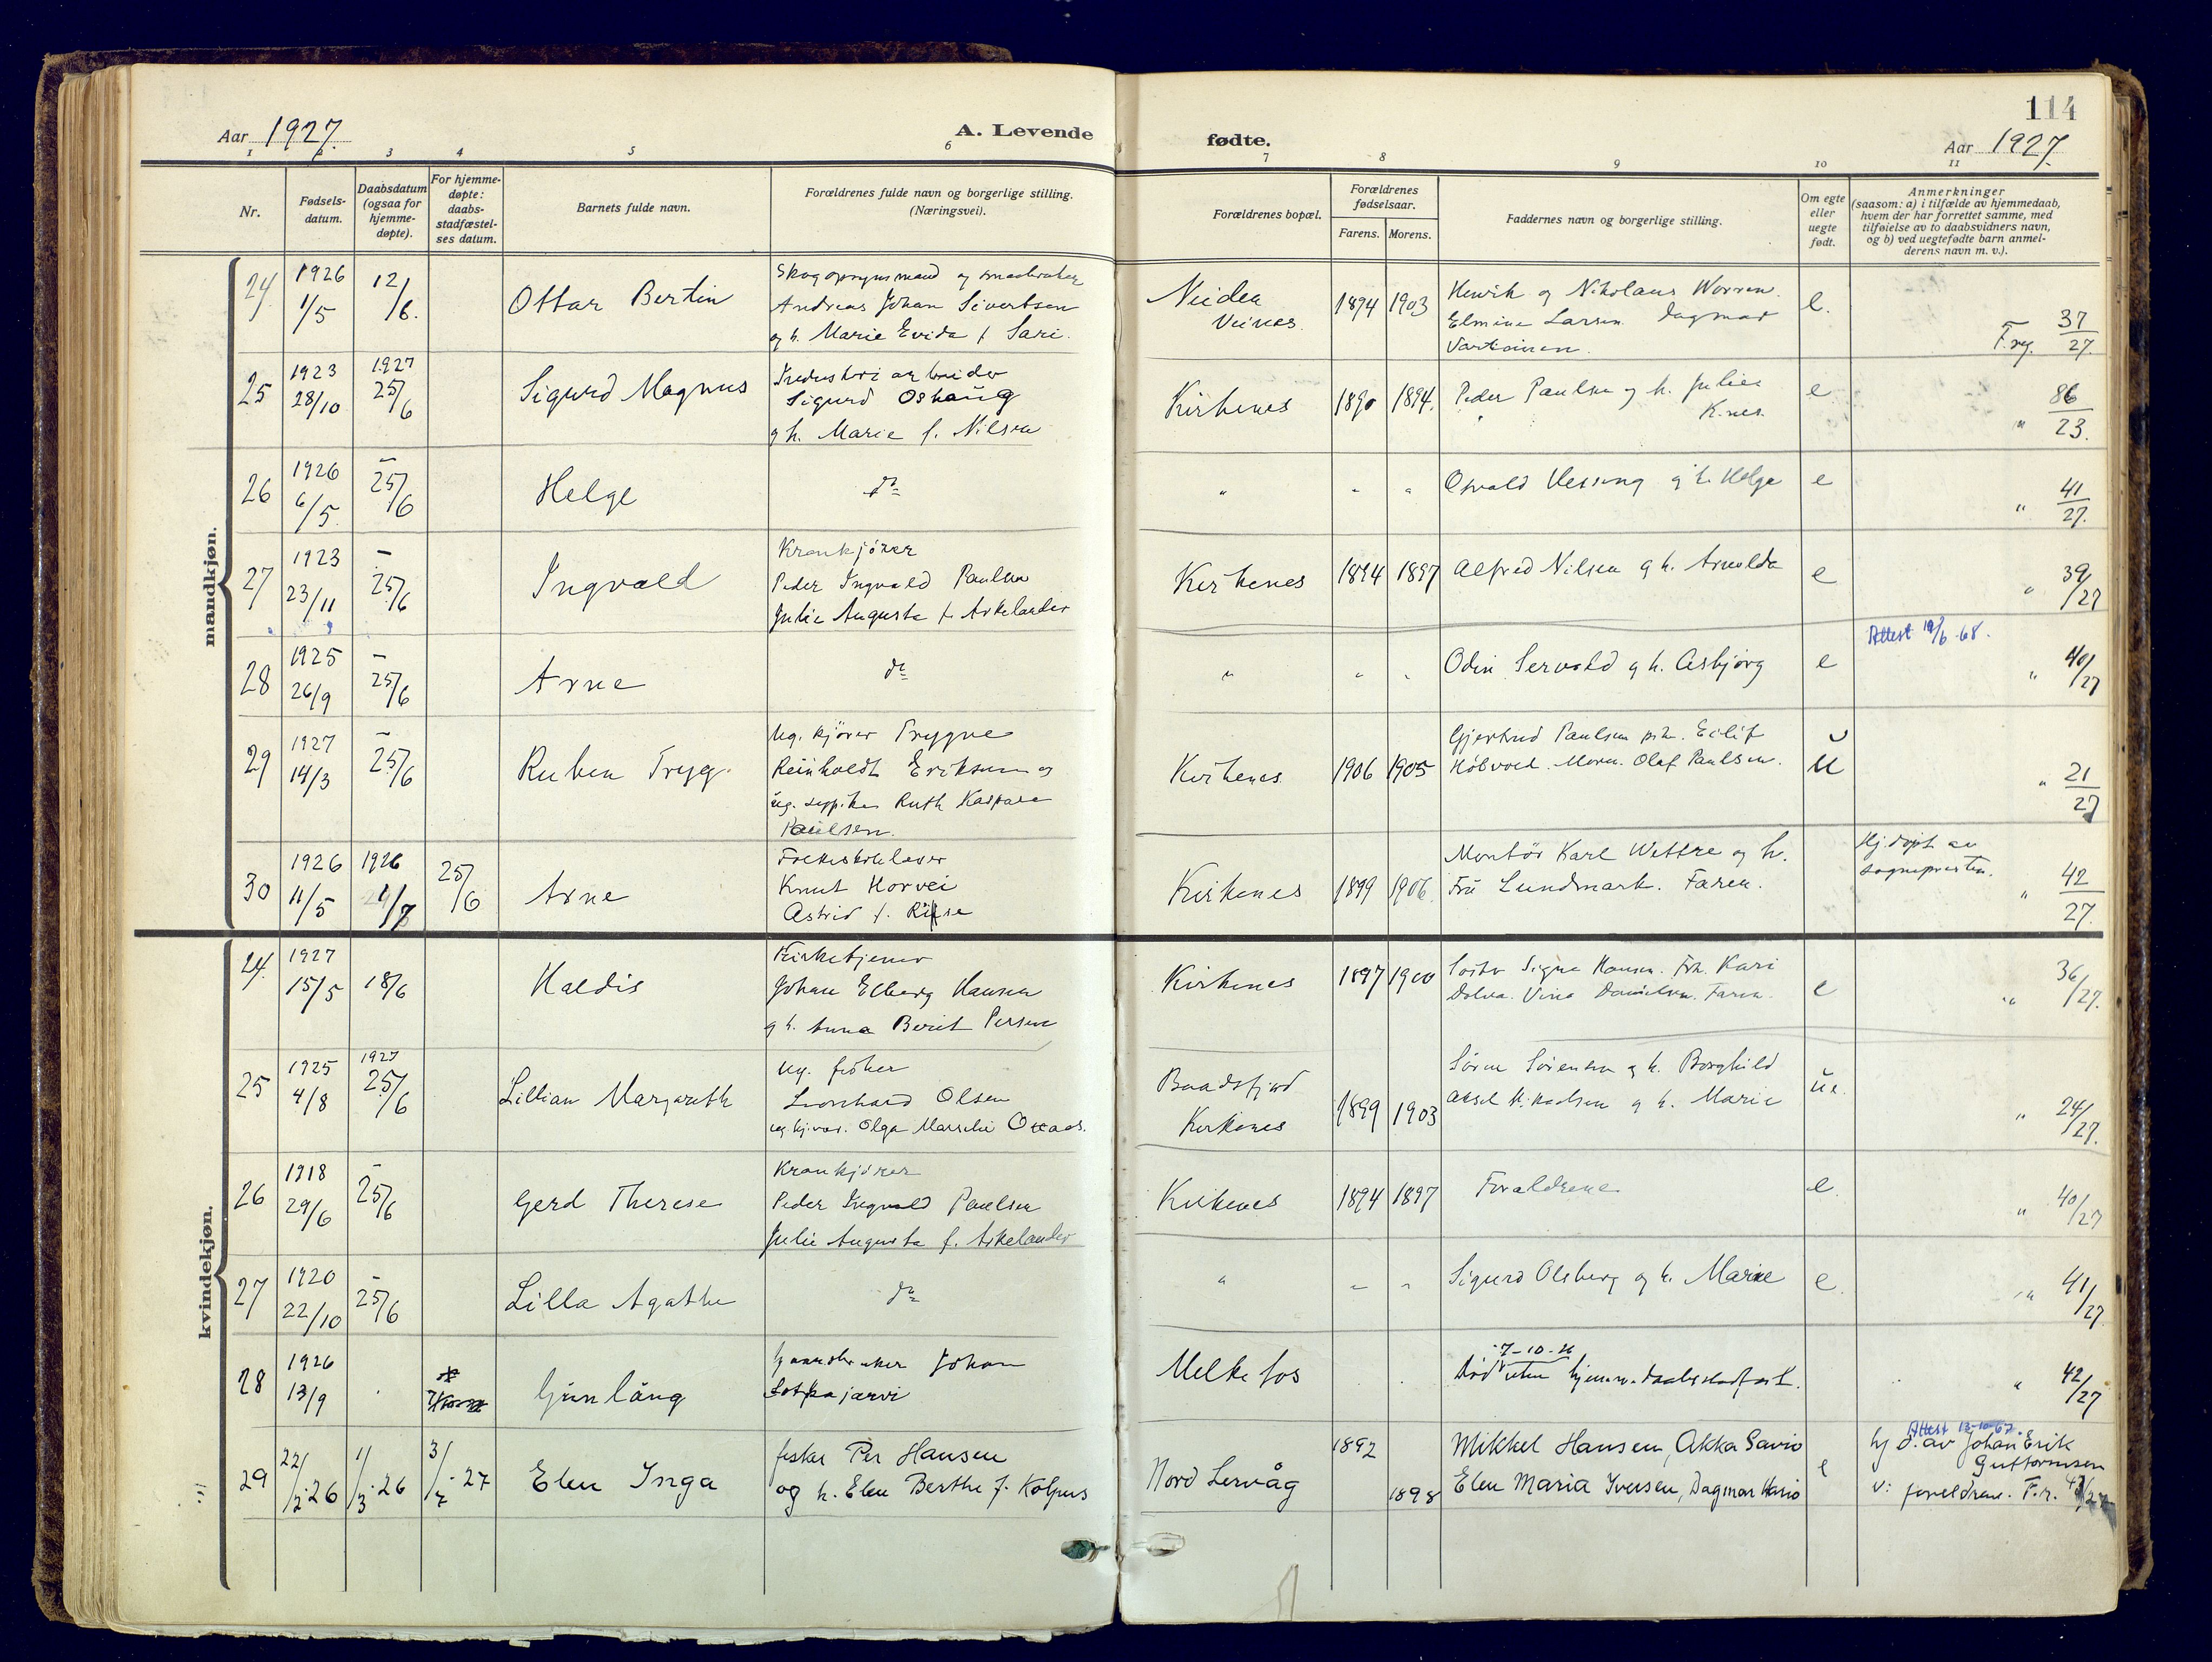 114
Aar 1927.
A. Levende
fødte.
Aar 1927.
1 2 3 4 5 6 7 8 9 10 11
Nr.
Fødsels-
datum.
Daabsdatum
(ogsaa for
hjemme-
døpte).
For hjemme-
døpte:
daabs-
stadfæstel-
ses datum.
Barnets fulde navn.
Forældrenes fulde navn og borgerlige stilling.
(Næringsvei).
Forældrenes bopæl.
Forældrenes
fødselsaar.
Farens. Morens.
Faddernes navn og borgerlige stilling.
Om egte
eller
uegte
født.
Anmerkninger
(saasom: a) i tilfælde av hjemmedaab,
hvem der har forrettet samme, med
tilføielse av to daabsvidners navn,
og b) ved uegtefødte barn anmel-
derens navn m. v.).
mandkjøn.
24 1926 1/5 12/6. Ottar Bertin
Andreas Johan Sivertsen
og h. Marie Evida f. Sari.
Neiden
1894 1903
Henrik og Nikolaus
Elmine Larsen. Dagmar
e.
F. reg. 37/27.
25 1923 28/10 1927 25/6 Sigurd Magnus
Industriarbeider
Sigurd Oshaug
g h. Marie f. Nilsen
Kirkenes 1890 1894.
Peder Paulsen og h. Julie
K.nes.
e
" 86/23.
26 1926 6/5. – 25/6 Helge
do
" " "
Osvald Wessing g h. Helga
e
" 41/27.
27 1923 23/11 – 25/6 Ingvald
Krankjører
Peder Ingvald Paulsen
Julie Augusta f. Askelander
Kirkenes 1894 1897
Alfred Nilsen g h. Arnolda
e
" 39/27
28 1925 26/9 – 25/6 Arne
do
" " "
Odin g h. Asbjørg
e
Attest 19/6-68.
" 40/27
29 1927 14/3 – 25/6 Ruben Tryg.
Ug. kjører Trygve
Reinholdt Eriksen og
ug. Ruth Kaspara
Paulsen.
Kirkenes 1906 1905
Gjertrud Paulsen Eilif
Moren. Olaf Paulsen.
U
" 21/27
30 1926 11/5 1926 1/7 25/6 Arne
Folkeskolelærer
Knut Horvei
Astrid f. Riise
Kirkenes 1899 1906.
Montør Karl Wettre og h.
Fru Lundmark. Faren.
Hj. døpt av
sognepresten.
" 42/27.
kvindekjøn.
24. 1927 15/5 18/6 Haldis
Kirketjener
Johan Elberg Hansen
g h. Anna Berit Persen
Kirkenes 1897 1900
Søster Signe Hansen. Frk. Kari
Dolva. Danielsen. Faren.
e
" 36/27.
25 1925 4/8 1927 25/6 Lillian Margareth
ug. fisker
Leonhard Olsen
Olga
Baadsfjord
Kirkenes
1899 1903
Søren Sørensen g h. Borghild
Aksel g h. Marie
ue.
" 24/27.
26 1918 29/6 – 25/6 Gerd Therese
Krankjører
Peder Ingvald Paulsen
Julie Augusta f. Askelander
Kirkenes 1894 1897
Forældrene
e.
" 40/27
27 1920 22/10 – 25/6 Lilla Agathe
do
" " "
Sigurd Olsberg og h. Marie
e.
" 41/27
28 1926 13/9 Gunlaug
Gaardbruker Johan
Melkefos
7-10-26
Død uten hjemme-daabsstadfæst.
" 42/27
29 22/2-26 1/3-26 3/7-27 Elen Inga
fisker Per Hansen
og h. Elen Berthe f. Kolpus
Nord Lervåg 1892 1898
Mikkel Hansen, Akka Savio
Elen Maria Iversen, Dagmar
e
Attest 12-10-67.
hj d. av Johan Erik
Guttormsen
v: foreldrene. F.r.